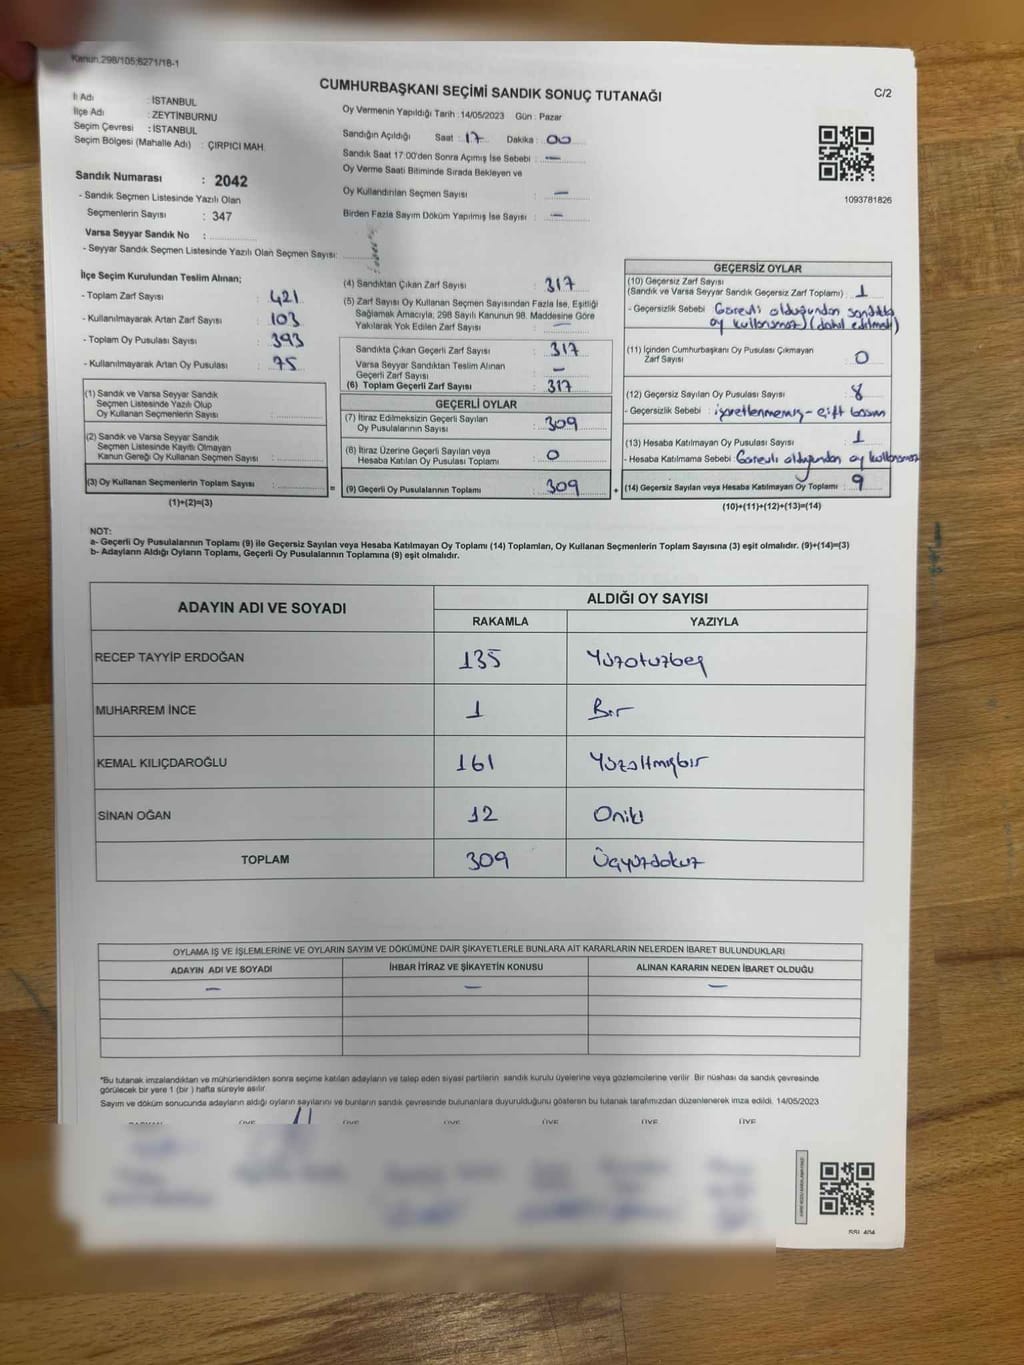 Kanun.298/105;6271/18-1
CUMHURBAŞKANI SEÇİMİ SANDIK SONUÇ TUTANAĞI
C/2
İl Adı : İSTANBUL
İlçe Adı : ZEYTİNBURNU
Seçim Çevresi : İSTANBUL
Seçim Bölgesi (Mahalle Adı) : ÇIRPICI MAH.
Oy Vermenin Yapıldığı Tarih :14/05/2023 Gün : Pazar
Sandığın Açıldığı Saat : 17 Dakika : 00
Sandık Saat 17:00'den Sonra Açımış İse Sebebi : —
Oy Verme Saati Bitiminde Sırada Bekleyen ve
Oy Kullandırılan Seçmen Sayısı : —
Birden Fazla Sayım Döküm Yapılmış İse Sayısı : —
1093781826
Sandık Numarası : 2042
- Sandık Seçmen Listesinde Yazılı Olan
Seçmenlerin Sayısı : 347
Varsa Seyyar Sandık No :
- Seyyar Sandık Seçmen Listesinde Yazılı Olan Seçmen Sayısı:
İlçe Seçim Kurulundan Teslim Alınan;
- Toplam Zarf Sayısı : 421
- Kullanılmayarak Artan Zarf Sayısı : 103
- Toplam Oy Pusulası Sayısı : 393
- Kullanılmayarak Artan Oy Pusulası : 75
(1) Sandık ve Varsa Seyyar Sandık
Seçmen Listesinde Yazılı Olup
Oy Kullanan Seçmenlerin Sayısı :
(2) Sandık ve Varsa Seyyar Sandık
Seçmen Listesinde Kayıtlı Olmayan
Kanun Gereği Oy Kullanan Seçmen Sayısı :
(3) Oy Kullanan Seçmenlerin Toplam Sayısı :
(1)+(2)=(3)
(4) Sandıktan Çıkan Zarf Sayısı : 317
(5) Zarf Sayısı Oy Kullanan Seçmen Sayısından Fazla İse, Eşitliği
Sağlamak Amacıyla, 298 Sayılı Kanunun 98. Maddesine Göre
Yakılarak Yok Edilen Zarf Sayısı : —
Sandıkta Çıkan Geçerli Zarf Sayısı : 317
Varsa Seyyar Sandıktan Teslim Alınan
Geçerli Zarf Sayısı : —
(6) Toplam Geçerli Zarf Sayısı : 317
GEÇERLİ OYLAR
(7) İtiraz Edilmeksizin Geçerli Sayılan
Oy Pusulalarının Sayısı : 309
(8) İtiraz Üzerine Geçerli Sayılan veya
Hesaba Katılan Oy Pusulası Toplamı : 0
= (9) Geçerli Oy Pusulalarının Toplamı : 309 +
GEÇERSİZ OYLAR
(10) Geçersiz Zarf Sayısı
(Sandık ve Varsa Seyyar Sandık Geçersiz Zarf Toplamı) : 1
- Geçersizlik Sebebi : Görevli olduğundan sandıkta
oy kullanamaz (dahil edilmedi)
(11) İçinden Cumhurbaşkanı Oy Pusulası Çıkmayan
Zarf Sayısı : 0
(12) Geçersiz Sayılan Oy Pusulası Sayısı : 8
- Geçersizlik Sebebi : işaretlenmemiş - çift basım
(13) Hesaba Katılmayan Oy Pusulası Sayısı : 1
- Hesaba Katılmama Sebebi : Görevli olduğundan oy kullanamaz
(14) Geçersiz Sayılan veya Hesaba Katılmayan Oy Toplamı : 9
(10)+(11)+(12)+(13)=(14)
NOT:
a- Geçerli Oy Pusulalarının Toplamı (9) ile Geçersiz Sayılan veya Hesaba Katılmayan Oy Toplamı (14) Toplamları, Oy Kullanan Seçmenlerin Toplam Sayısına (3) eşit olmalıdır. (9)+(14)=(3)
b- Adayların Aldığı Oyların Toplamı, Geçerli Oy Pusulalarının Toplamına (9) eşit olmalıdır.
ADAYIN ADI VE SOYADI
ALDIĞI OY SAYISI
RAKAMLA YAZIYLA
RECEP TAYYİP ERDOĞAN 135 Yüzotuzbeş
MUHARREM İNCE 1 Bir
KEMAL KILIÇDAROĞLU 161 Yüzaltmışbir
SİNAN OĞAN 12 Oniki
TOPLAM 309 Üçyüzdokuz
OYLAMA İŞ VE İŞLEMLERİNE VE OYLARIN SAYIM VE DÖKÜMÜNE DAİR ŞİKAYETLERLE BUNLARA AİT KARARLARIN NELERDEN İBARET BULUNDUKLARI
ADAYIN ADI VE SOYADI İHBAR İTİRAZ VE ŞİKAYETİN KONUSU ALINAN KARARIN NEDEN İBARET OLDUĞU
— — —
*Bu tutanak imzalandıktan ve mühürlendikten sonra seçime katılan adayların ve talep eden siyasi partilerin sandık kurulu üyelerine veya gözlemcilerine verilir. Bir nüshası da sandık çevresinde
görülecek bir yere 1 (bir ) hafta süreyle asılır.
Sayım ve döküm sonucunda adayların aldığı oyların sayılarını ve bunların sandık çevresinde bulunanlara duyurulduğunu gösteren bu tutanak tarafımızdan düzenlenerek imza edildi. 14/05/2023
ÜYE ÜYE ÜYE ÜYE ÜYE ÜYE